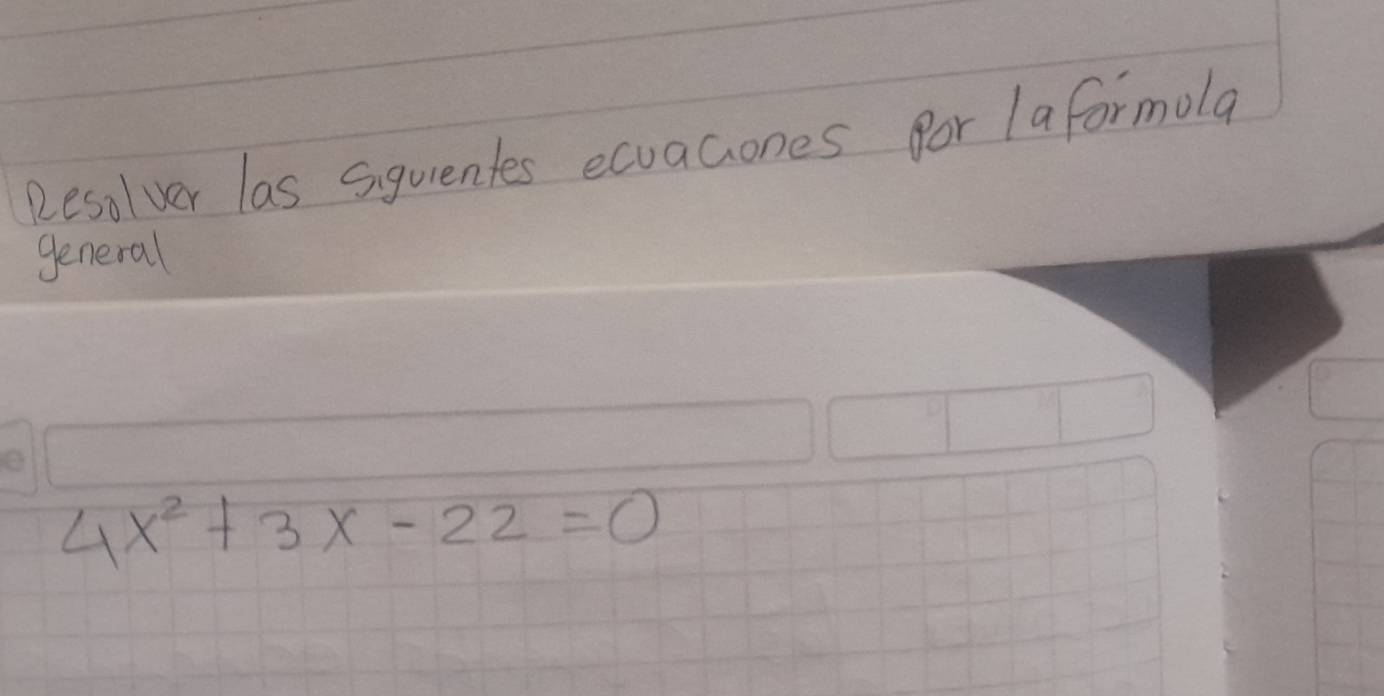 Resolver las siguientes ecuaciones por la fórmula
general
e
D M A
4x² + 3x - 22 = 0